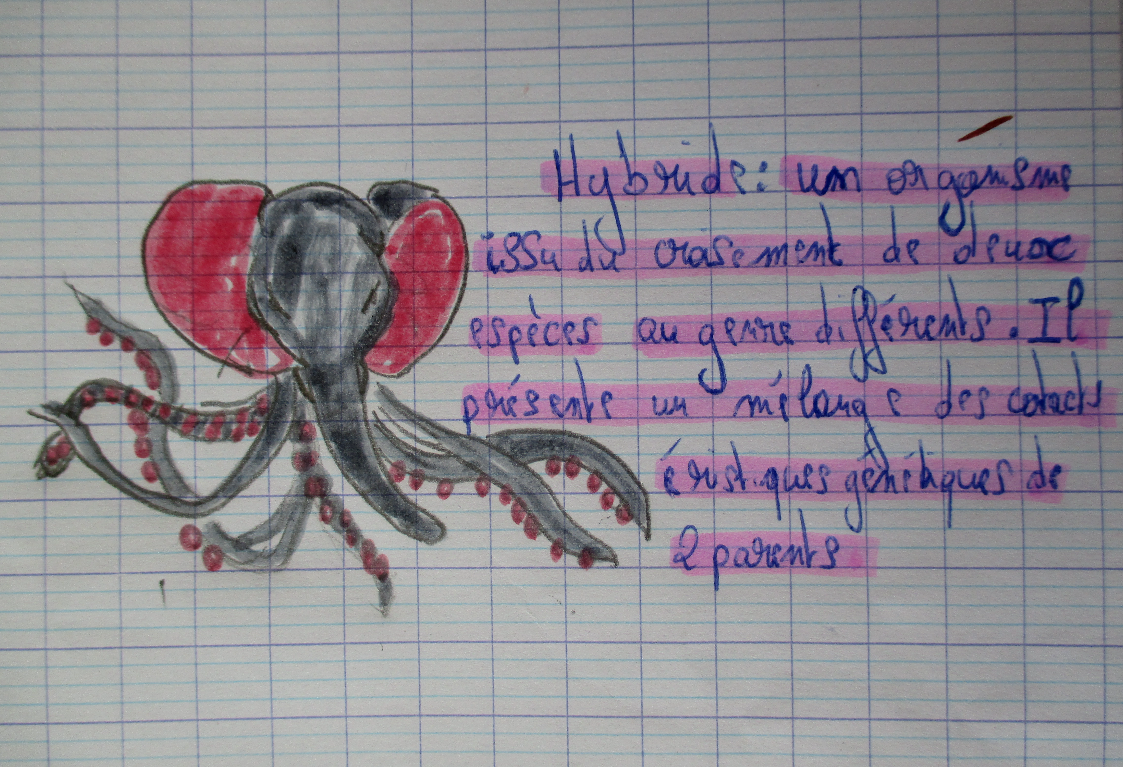 Hybride: un organisme
issu du croisement de deux
espèces au genre différents. Il
présente un mélange des caract
éristiques génétiques de
2 parents